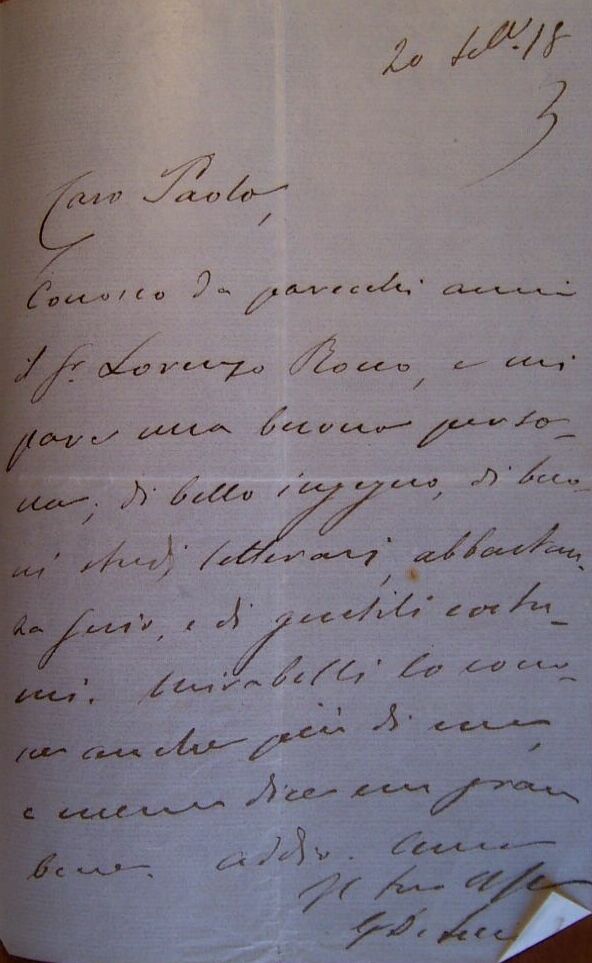 20 18
Caro Paolo,
Conosco da parecchi anni
il Sr. Lorenzo Rocco, e mi
pare una buona perso-
na; di bello ingegno, di buo-
ni studj letterari, abbastan-
za serio, e di gentili costu-
mi. Mirabelli lo cono-
sce anche più di me,
e me ne dice un gran
bene. Addio. Ama
Il tuo